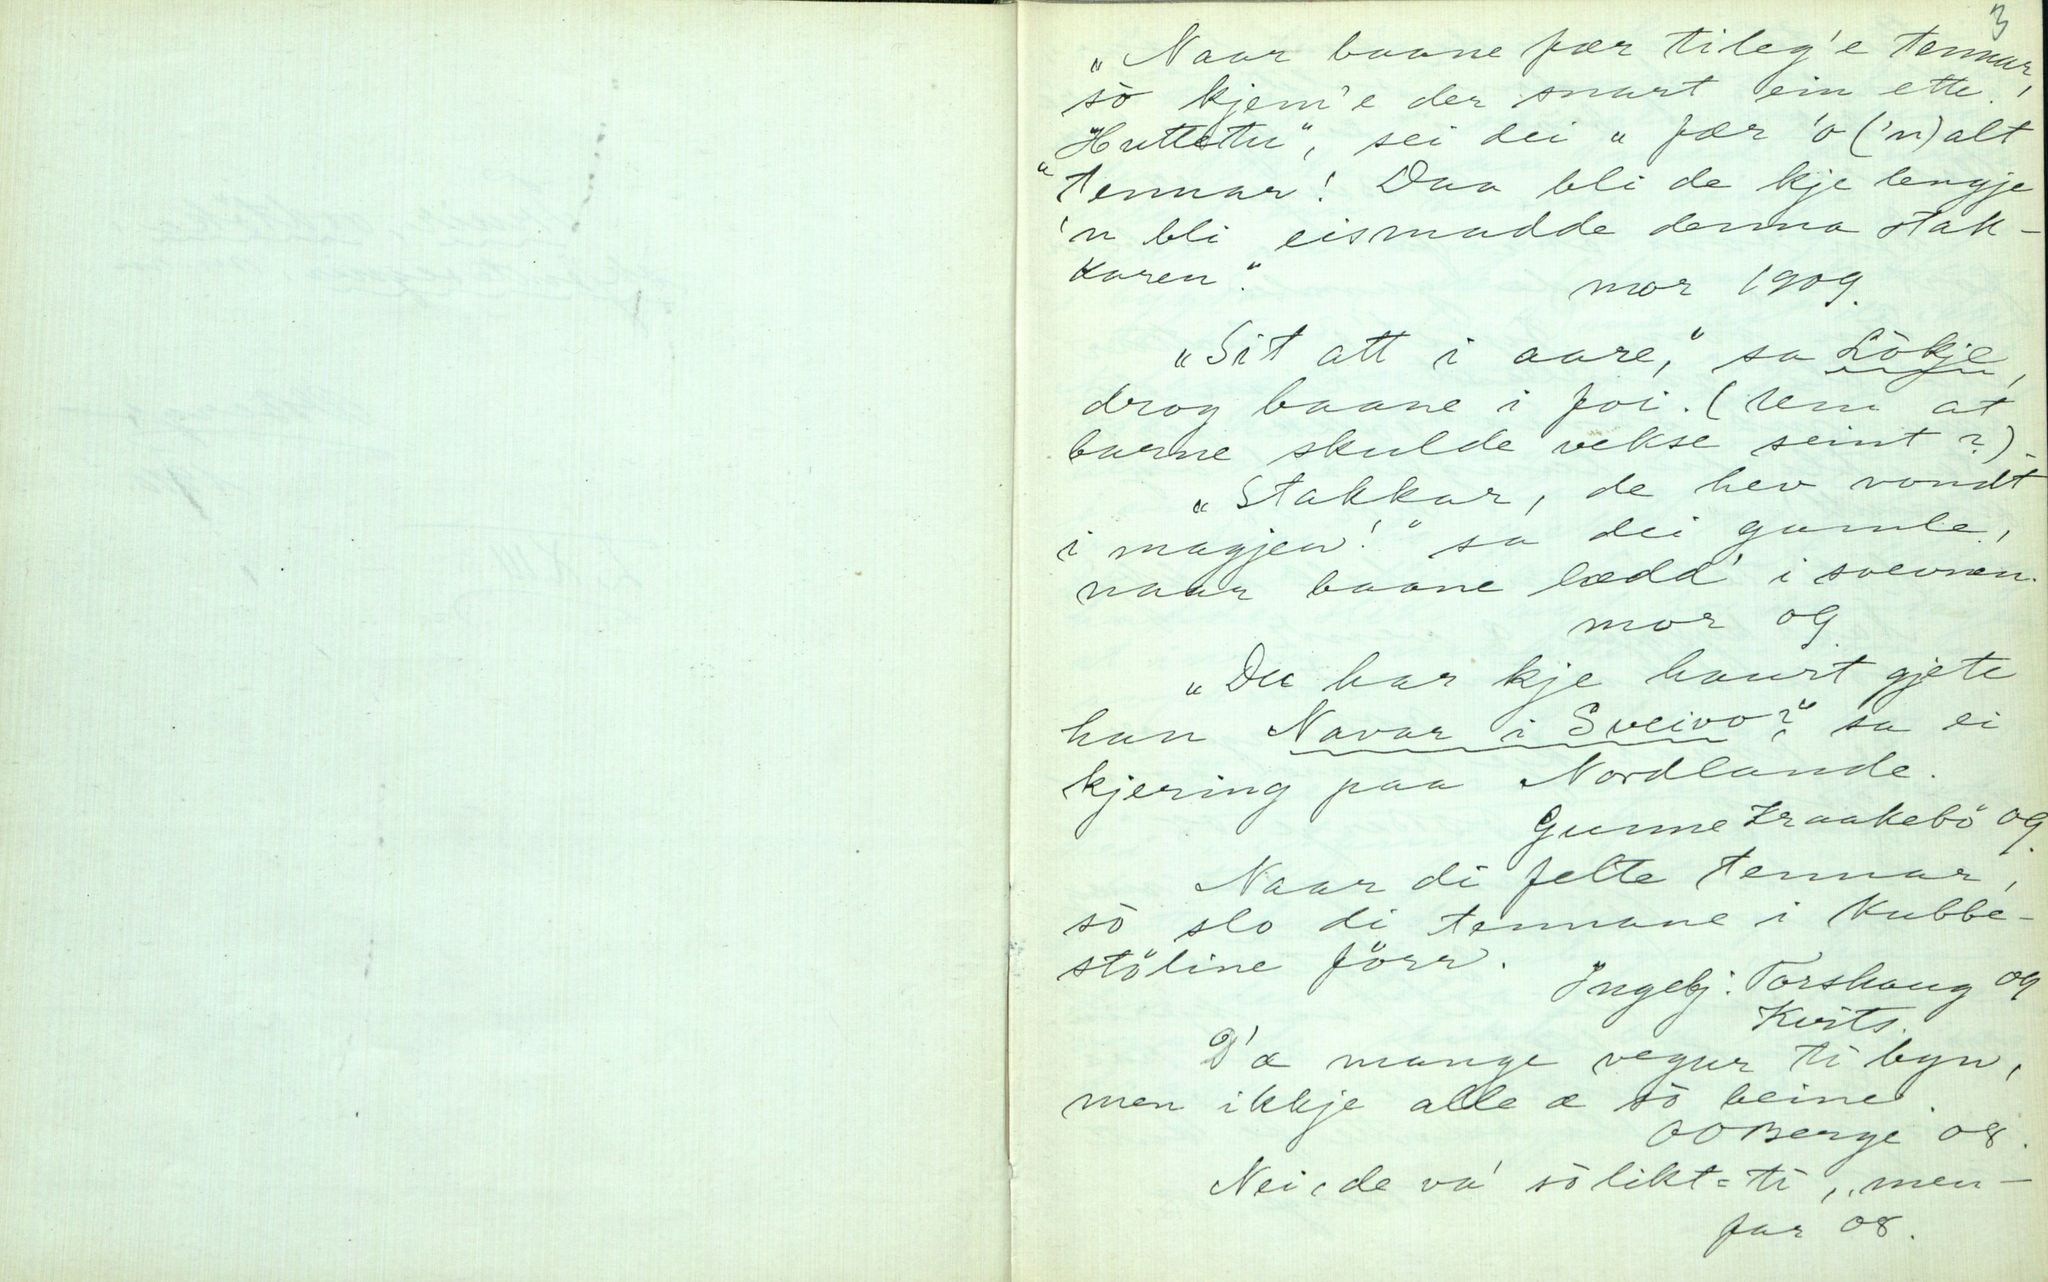 3
„Naar baane fær tileg'e tennar,
sò kjem'e der snart ein ette.
„Huttetu", sei dei „fær 'o ('n) alt
tennar! Daa bli de kje lengje
'n bli eismadde denna stak-
karen."
mor 1909.
„Sit att i aare," sa Lökje,
drog baane i foi. (Um at
barne skulde vekse seint?)
„Stakkar, de hev vondt
i magjen!" sa dei gamle,
naar baane lædd' i svevnen.
mor 09
„Du har kje haurt gjete
han Navar i Sveivo?" sa ei
kjering paa Nordlande.
Gunne Kraakebö 09.
Naar di felte tennar,
sò slo di tennane i kubbe-
stöline förr.
Ingebj. Torshaug 09
Kvits.
D'æ mange vegar ti byn,
men ikkje alle æ sò beine.
OOBerge 08.
Nei, de va' sò likt=ti, „men-
far 08.